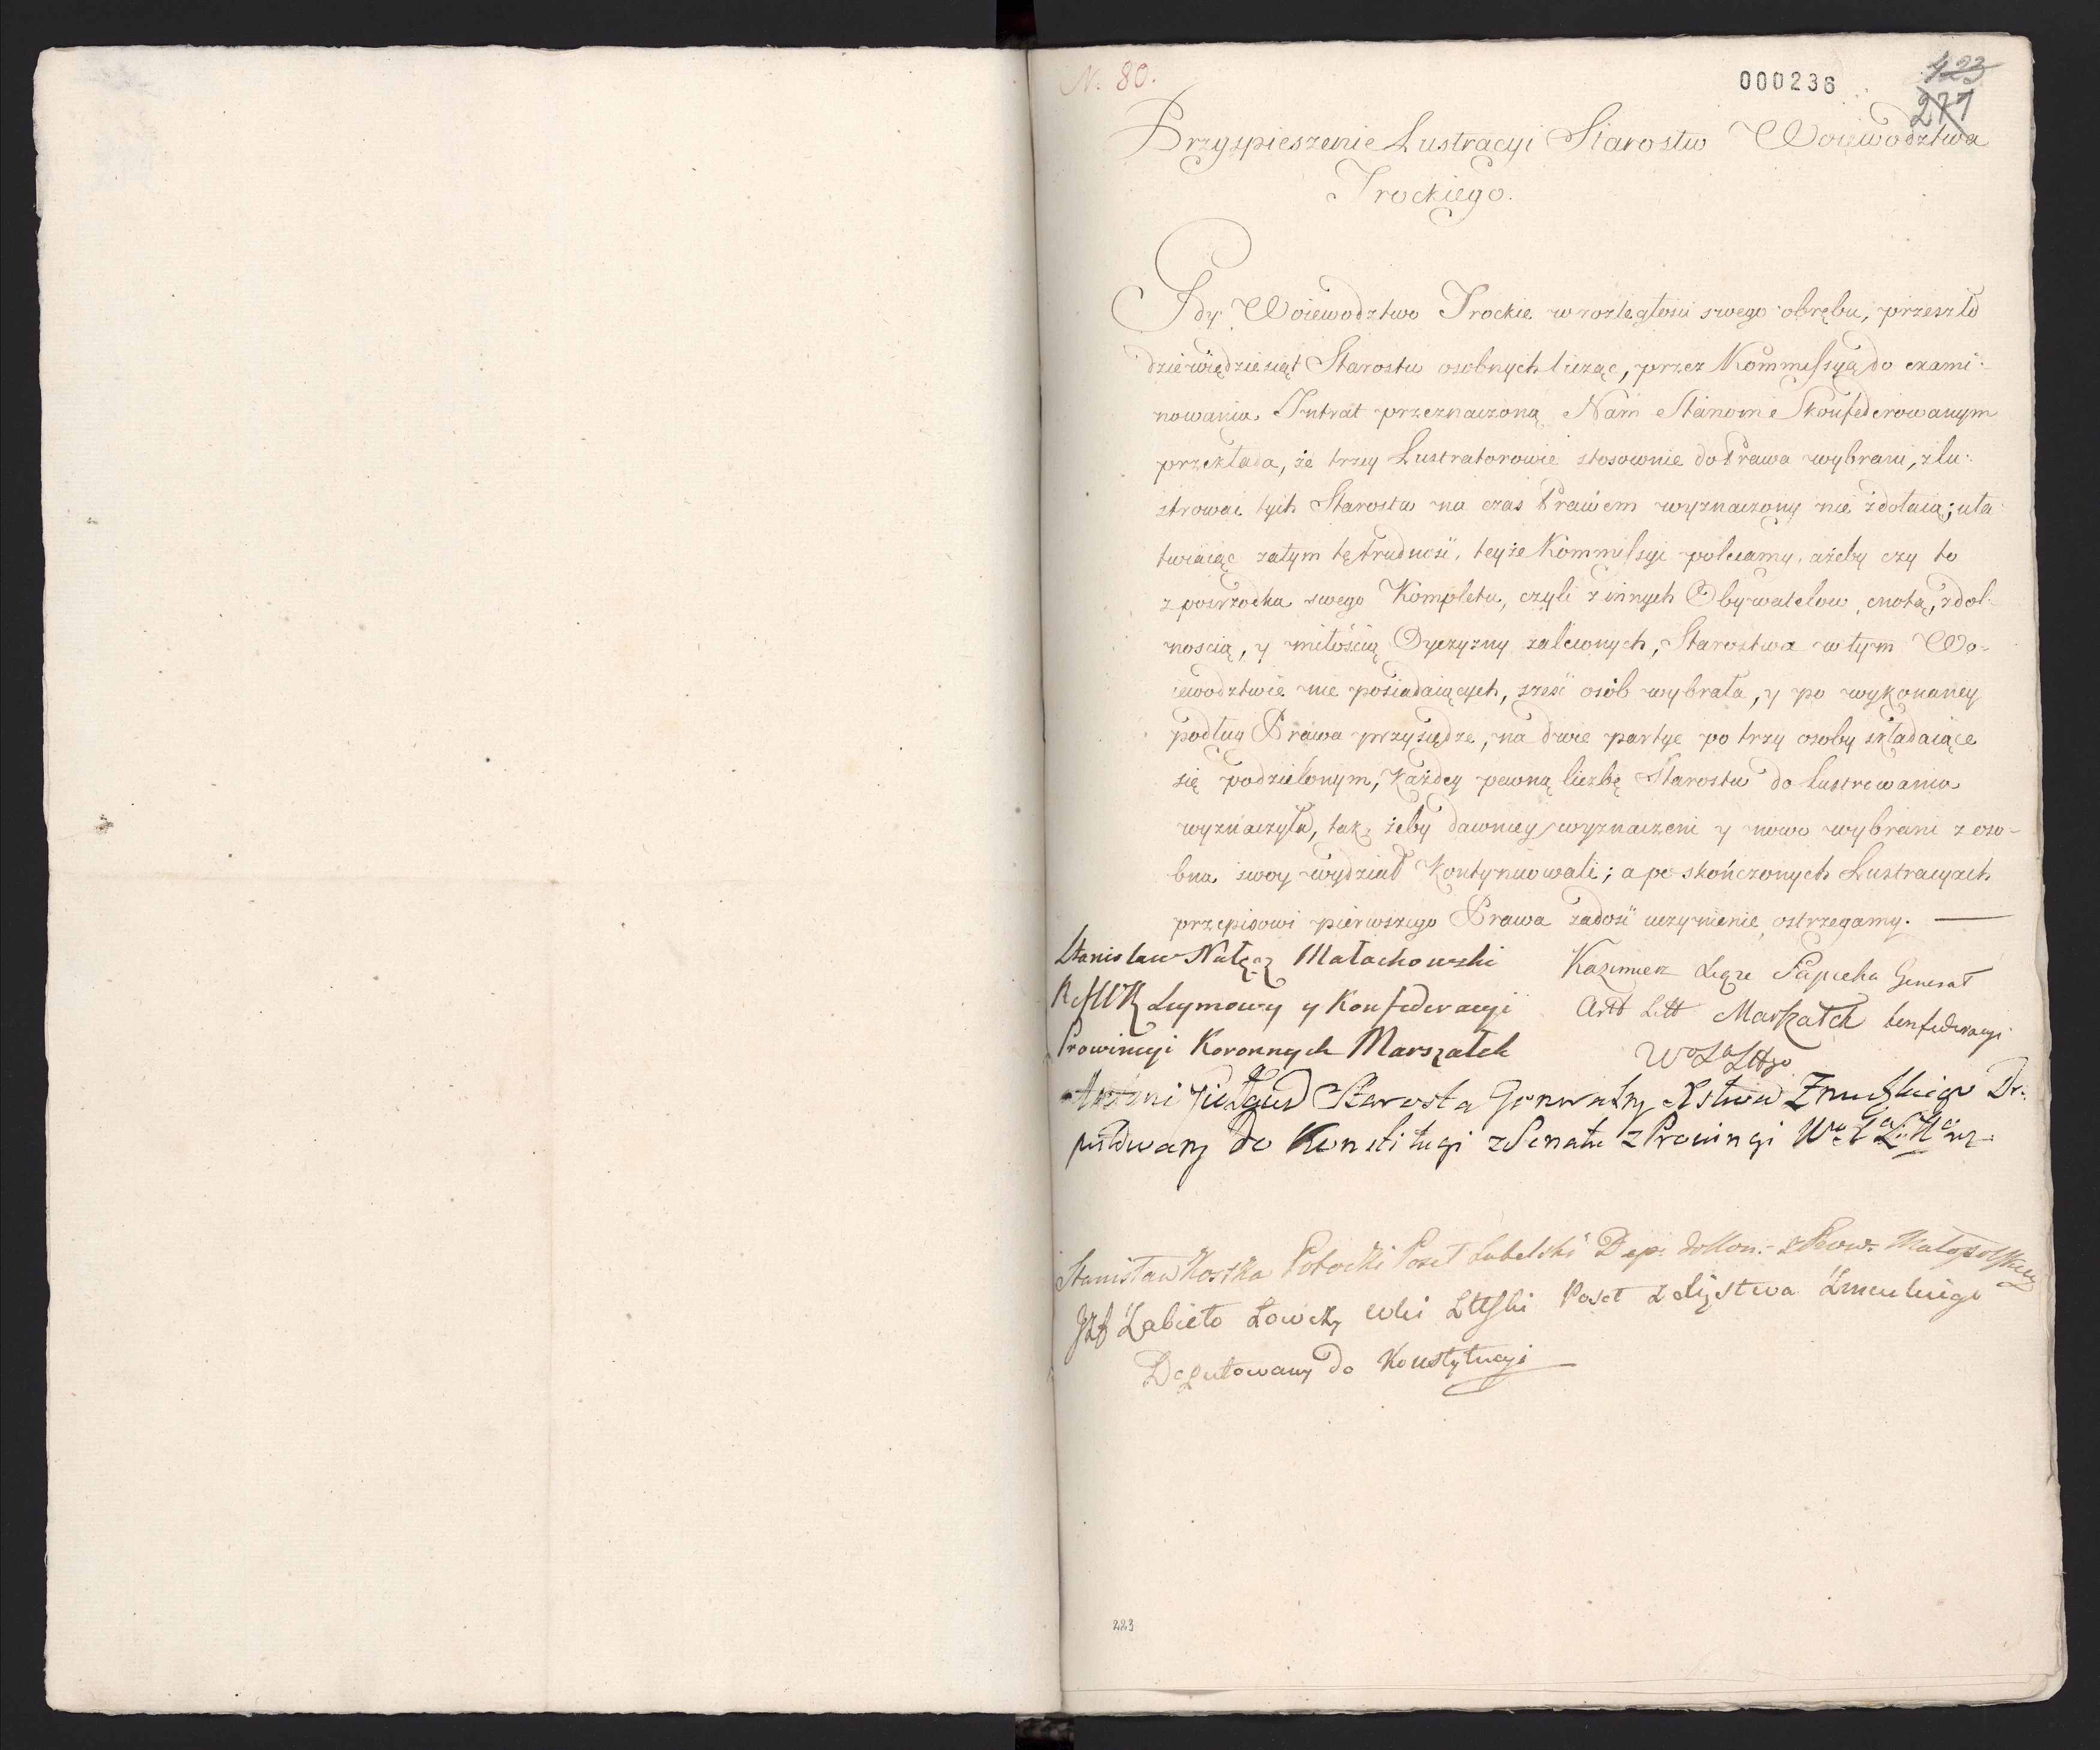 N. 80.
000236
423
271
Przyspieszenie Lustracyi Starostw Woiewodztwa
Trockiego.
Gdy Woiewodztwo Trockie w rozległosci swego obrębu, przeszło
dziewiędziesiąt Starostw osobnych licząc, przez Kommissyą do exami:
nowania Intrat przeznaczoną Nam Stanom Skonfederowanym
przekłada, że trzey Lustratorowie stosownie do Prawa wybrani, zlu:
strować tych Starostw na czas Prawem wyznaczony nie zdołaią; uła:
twiaiąc zatym tę trudność, teyże Kommissyi polecamy, ażeby czy to
z pośrzodka swego Kompletu, czyli z innych Obywatelow, cnotą, zdol-
nością, y miłością Oyczyzny zaleconych, Starostwa w tym Wo-
iewodztwie nie posiadaiących, sześć osób wybrała, y po wykonaney
podług Prawa przysiędze, na dwie partye po trzy osoby składaiące
się podzielonym, każdey pewną liczbę Starostw do lustrowania
wyznaczyła, tak, żeby dawniey wyznaczeni y nowo wybrani z oso-
bna swoy wydział kontynuowali; a po skończonych Lustracyach
przepisowi pierwszego Prawa zadość uczynienie ostrzegamy.
Stanisław Nałęcz Małachowski
R W K Seymowy y Konfederacyi
Prowincyi Koronnych Marszałek
Kazimierz Xiąże Sapieha Generał
Artt Litt Marszałek konfederacyi
W X Littgo
Antoni Giełgud Starosta Generalny Xstwa Zmudzkiego De:
putowany do Konstitucyi z Senatu z Prowincyi W X Litt
Stanisław Kostka Potocki Poseł Lubelski Dep: do Kon:- z Prow: Małopolskiey
Jzf Zabiełło Łowczy Wki Littski Poseł z Xięstwa Zmudzkiego
Deputowany do Konstytucyi
223